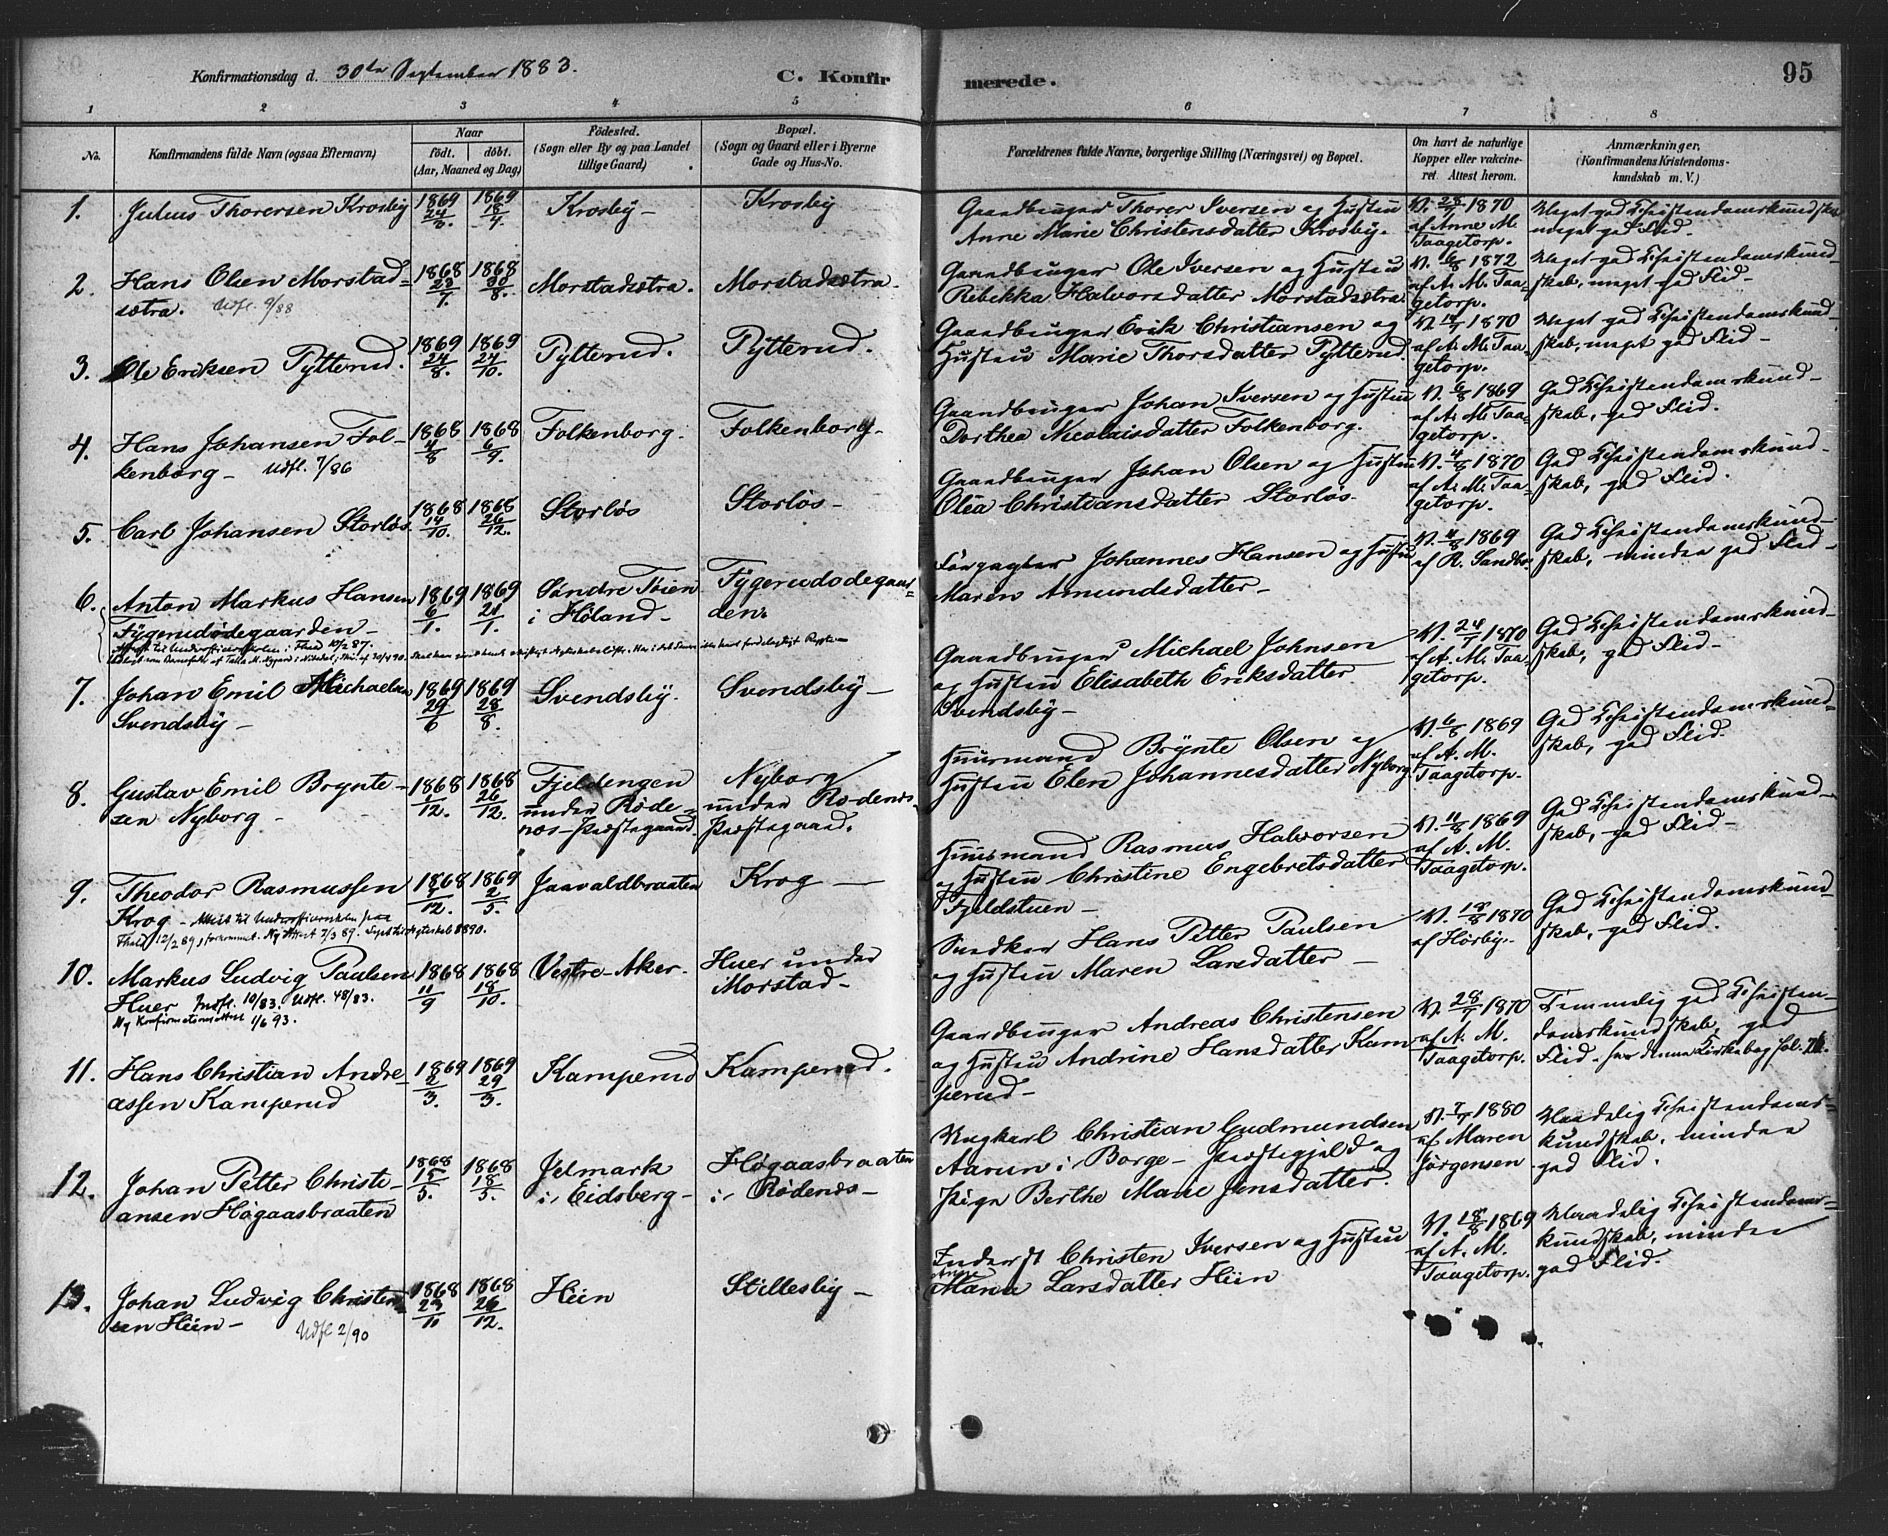 Konfirmationsdag d. 30te September 1883.
C. Konfirmerede.
95
1 2 3 4 5 6 7 8
No.
Konfirmandens fulde Navn (ogsaa Efternavn)
Naar
født. døbt.
(Aar, Maaned og Dag)
Fødested.
(Sogn eller By og paa Landet
tillige Gaard)
Bopæl.
(Sogn og Gaard eller i Byerne
Gade og Hus-No.
Forældrenes fulde Navne, borgerlige Stilling (Næringsvei) og Bopæl.
Om havt de naturlige
Kopper eller vakcine-
ret. Attest herom.
Anmærkninger,
(Konfirmandens Kristendoms-
kundskab m. V.)
1. Julius Thorersen Krosby
1869 24/3. 1869 18/4.
Krosby –
Krosby
Gaardbruger Thorer Iversen og Hustru
Anne Marie Christensdatter Krosby.
1870
af Anne M.
Taagetorp.
Meget god Christendomskundskab
meget god Flid.
2. Hans Olsen Morstad-
sætra. Udfl. 9/88
1868 23/7. 1868 30/8.
Morstadsætra.
Morstadsætra.
Gaardbruger Ole Iversen og Hustru
Rebekka Halvorsdatter Morstadsætra
V. 6/8 1872
af A. M. Taa-
getorp.
Meget god Christendomskund-
skab, meget god Flid –
3. Ole Eriksen Pytterud.
1869 24/8. 1869 24/10.
Pytterud.
Pytterud.
Gaardbruger Erik Christiansen og
Hustru Marie Thorsdatter Pytterud.
1870
af A. M. Taa-
getorp.
Meget god Christendomskund-
skab, meget god Flid –
4. Hans Johansen Fol-
kenborg – Udfl. 7/86
1868 4/8 1868 6/9.
Folkenborg.
Folkenborg.
Gaardbruger Johan Iversen og Hustru
Dorthea Nicolaisdatter Folkenborg.
V. 6/8 1869
af A. M. Taa-
getorp.
God Christendomskund-
skab, god Flid.
5. Carl Johansen Storløs
1868 14/10. 1868 26/12.
Storløs
Storløs –
Gaardbruger Johan Olsen og Hustru
Olea Christiansdatter Storløs.
V. 4/8 1870
af A. M. Taa-
getorp.
God Christendomskund-
skab, god Flid.
6. Anton Markus Hansen
Fygerudødegaarden –
1869 6/1. 1869 21/1.
Søndre Toien
i Høland –
Fygerudødegaar-
den.
Johannes Hansen og Hustru
Maren Amundsdatter –
V. 4/8 1869
af R. Sandbe
God Christendomskund-
skab, mindre god Flid –
7. Johan Emil Michaelsen
Svendsby –
1869 29/6 1869 28/8.
Svendsby.
Svendsby –
Gaardbruger Michael Johnsen
og Hustru Elisabeth Eriksdatter
Svendsby –
V. 24/7 1870
af A. M. Taa-
getorp.
God Christendomskund-
skab, god Flid –
8. Gustav Emil Brynte-
sen Nyborg –
1868 1/12. 1868 26/12.
Fjeldengen
under Røde-
næs-Præstegaard.
Nyborg
under Rødenes-
Præstegaard.
Huusmand Brynte Olsen og
Hustru Elen Johannesdatter Nyborg.
V. 6/8 1869
af A. M.
Taagetorp.
God Christendomskund-
skab, god Flid.
9. Theodor Rasmussen
Krog –
1868 1/12. 1869 2/5.
Jaavaldbraaten
Krog –
Huusmand Rasmus Halvorsen
og Hustru Christine Engebretsdatter
Fjeldstuen –
V. 11/8 1869
af A. M.
Taagetorp.
God Christendomskund-
skab, god Flid –
10. Markus Ludvig Paulsen
Huer Indfl. 10/83. Udfl. 48/83.
Ny Konfirmationsattest 1/6 93.
1868 11/9 1868 18/10.
Vestre-Aker.
Huer under
Morstad –
Snedker Hans Petter Paulsen
og Hustru Maren Larsdatter –
V. 18/8 1870
af Hørbye.
God Christendomskund-
skab, god Flid.
11. Hans Christian Andre-
assen Kamperud
1869 2/3. 1869 29/3.
Kamperud
Kamperud.
Gaardbruger Andreas Christensen
og Hustru Andrine Hansdatter Kam-
perud –
V. 28/7 1870
af A. M.
Taagetorp.
Temmelig god Christen-
domskundskab, god
Flid.
12. Johan Petter Christi-
ansen Høgaasbraaten
1868 15/5. 1868 18/5.
Jelmark
i Eidsberg –
Høgaasbraaten
i Rødenæs –
Ungkarl Christian Gudmundsen
Aarun i Borge – Præstegjeld og
Pige Berthe Marie Jensdatter.
V. 7/7 1880
af Maren
Jörgensen
Maadelig Christendoms-
kundskab, mindre
god Flid.
13. Johan Ludvig Christen-
sen Hün – Udfl 2/90
1868 23/11 1868 26/12.
Hün
Stillesby –
Inderst Christen Iversen og Hustru
Maria Larsdatter Hün
V. 18/8 1869
af A. M.
Taagetorp.
Maadelig Christendoms-
kundskab, mindre
god Flid.